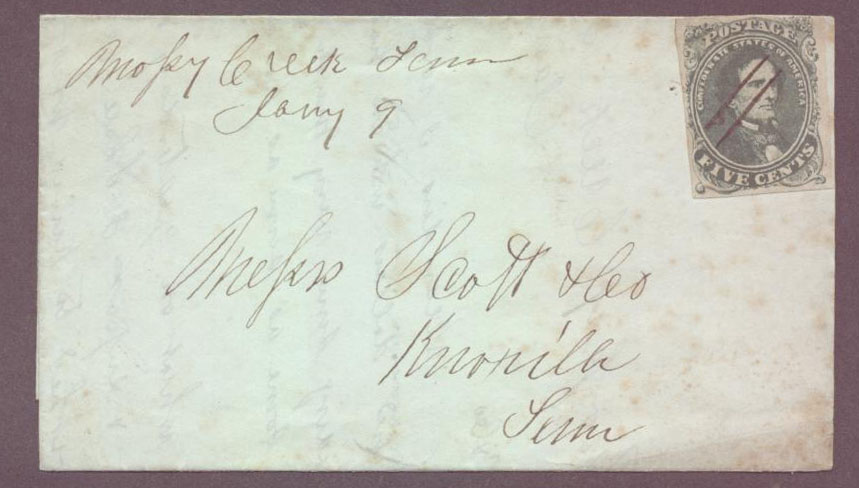 Mossy Creek Tenn
Jany 9
POSTAGE
CONFEDERATE STATES OF AMERICA
FIVE CENTS
Messrs Scott & Co
Knoxville
Tenn